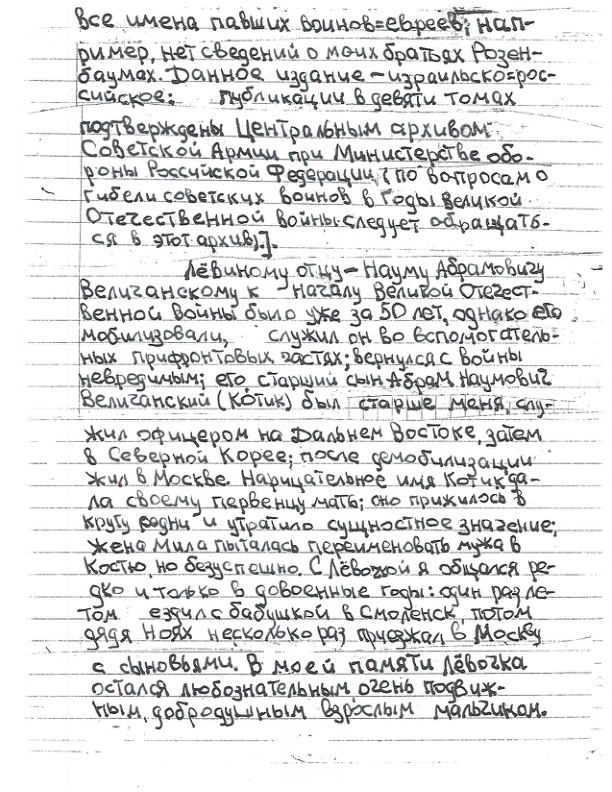 все имена павших воинов=евреев; нап-
ример, нет сведений о моих братьях Розен-
баумах. Данное издание – израильско=рос-
сийское: публикации в девяти томах
подтверждены Центральным архивом
Советской Армии при Министерстве обо-
роны Российской Федерации (по вопросам о
гибели советских воинов в годы Великой
Отечественной войны следует обращать-
ся в этот архив).].
Лёвиному отцу – Науму Абрамовичу
Величанскому к началу Великой Отечест-
венной войны было уже за 50 лет, однако его
мобилизовали, служил он во вспомогатель-
ных прифронтовых частях; вернулся с войны
невредимым; его старший сын Абрам Наумович
Величанский (Котик) был старше меня, слу-
жил офицером на Дальнем Востоке, затем
в Северной Корее; после демобилизации
жил в Москве. Нарицательное имя Котик да-
ла своему первенцу мать; оно прижилось в
кругу родни и утратило сущностное значение;
жена Мила пыталась переименовать мужа в
Костю, но безуспешно. С Лёвочкой я общался ре-
дко и только в довоенные годы: один раз ле-
том ездил с бабушкой в Смоленск, потом
дядя Ноях несколько раз приезжал в Москву
с сыновьями. В моей памяти Лёвочка
остался любознательным, очень подвиж-
ным, добродушным взрослым мальчиком.